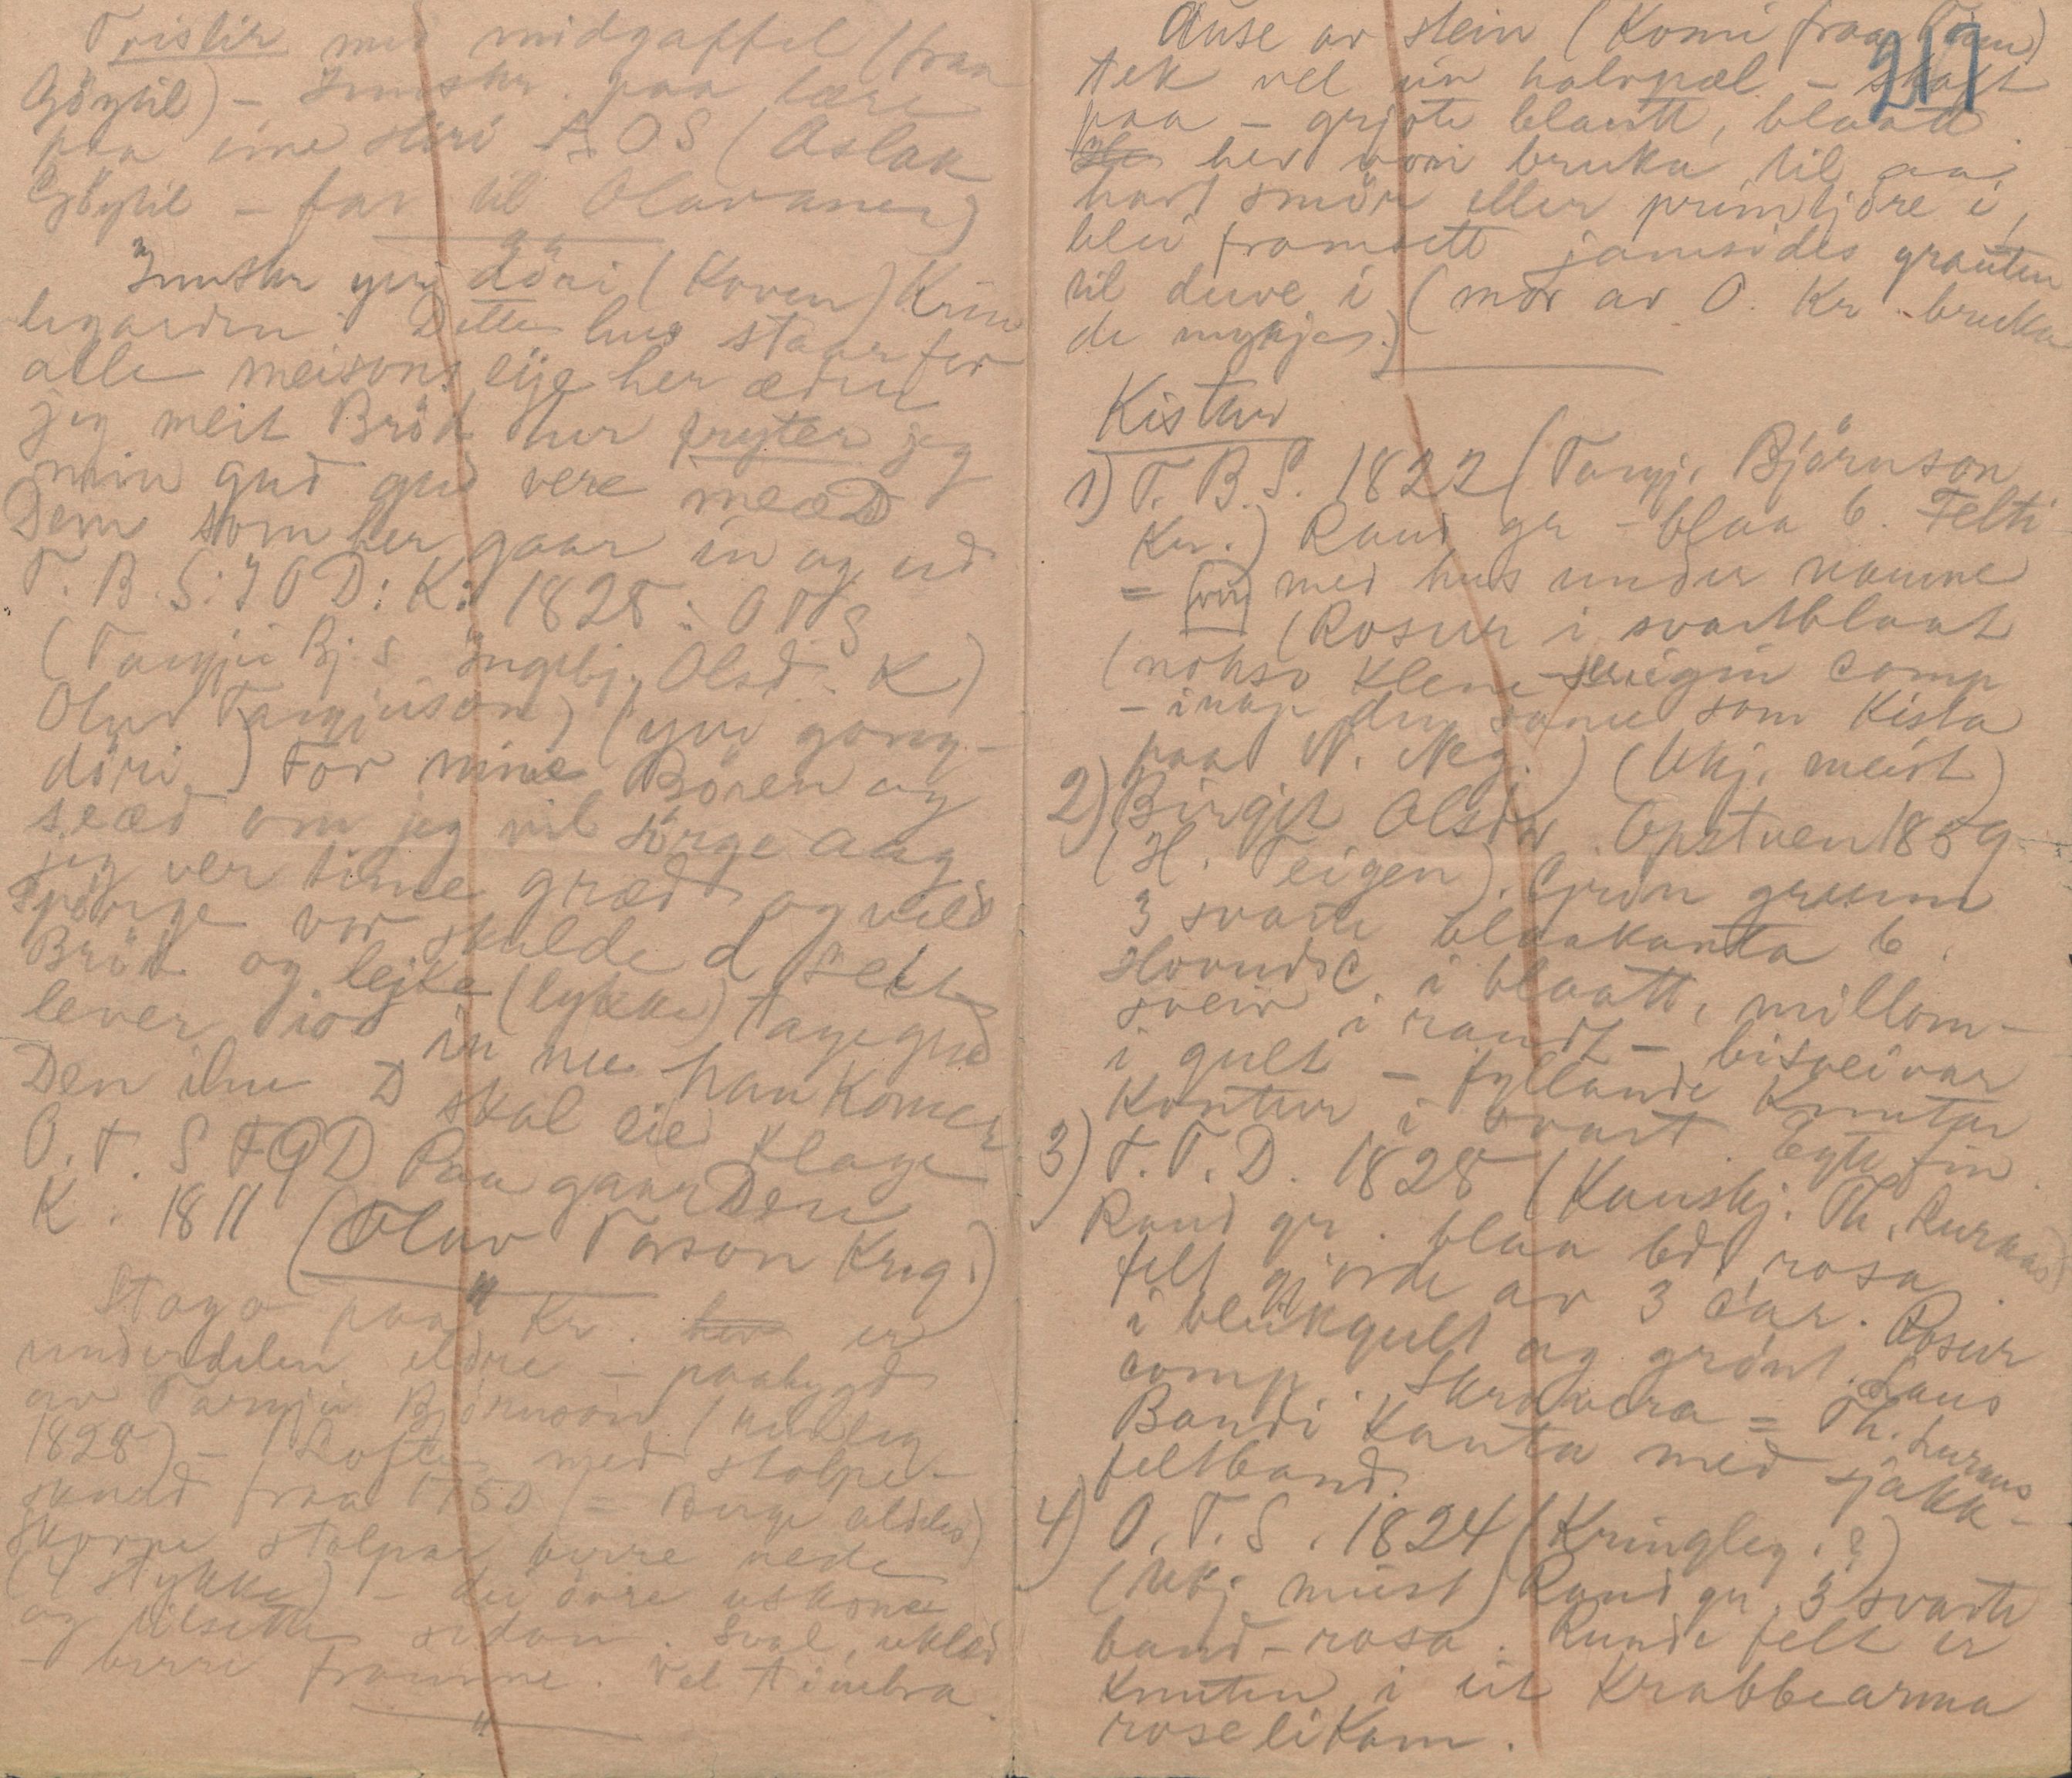 Trislir med midgaffel (fraa
Göytil) – Innskr. paa lære
paa eine sliri A OS (Aslak
Göytil – far til Olavanes)
Innskr yvi döri (Koven) Krin
legarden. Dette hus staar for
alle meisons eije her ædere
jeg meit Bröd her fryter jeg
min gud gud vere meæD
Dem som her gaar in og ud
T. B. S: I O D: K: 1828: O T S
(Targjei Bj. s Ingebj. Olsd. K)
Olav Targjeison) (yvi gong-
döri) For mine Bören ag
seæd om jeg vil sörge aag
jeg ver time græd og vild
spörge vor skulde d selt
Bröd og lejke (lykke) tage gud
lever iod in nu han komer
Den ilne D skal eie klage
O. T. S F G D Paa gaarDen
K. 1811 (Olav Torson Krig.)
Stogo paa Kr. her er
underdelen eldre – paabygd
av Targjei Björnson (truleg
1828) – Loftet med stolpe-
skudd fraa 1750 (= Berge aldeles)
skarpe stolpar berre nede
(4 stykke) – dei övre uskorne
og tilsette sidan. Sval, uklæd
– berre framme. Vel timbra.
217
Ause av stein (Komi fraa)
tek vel ein halvpæl – skaft
paa – grjote blautt, blaatt.
He hev vori bruka til aa
havt smör eller primkjöre i,
blei framsett jamsides grauten
til duve i (mor av O. Kr. bruka
de mykjes.)
Kistur
1) T. B. S. 1822 (Targj. Björnson
Kr.) Raud gr – blaa b. Felti
= med hus under namne
(Rosur i svartblaat
(nokso klene – seigin comp
– inkje den same som Kista
paa N. Neg.) (Ukj. meist)
2) Birgjit Olsdr. Opstuen 1859
(H. Teigen). Grön grunn
3 svarte blaakanta b.
Hovudsc. i blaatt, millom-
sveiv i raudt – bisveivar
i gult – fyllande Knutar
Kontur i svart. Egte fin.
3) T. T. D. 1828 (Kanskj. Th. Lurkaas)
Raud gr. blaa bd rosa.
felt gjorde av 3 c'ar. Rosur
i bleikgult og grönt. Laus
comp. Skravera = Th. Lurkaas
Bandi Kanta med sjakk-
feltband.
4) O. T. S. 1824 (Kringleg. ?)
(Ukj. meist) Raud gr. 3 svarte
band – rosa. Runde felt er
Knuten i eit Krabbearma
roselikam.